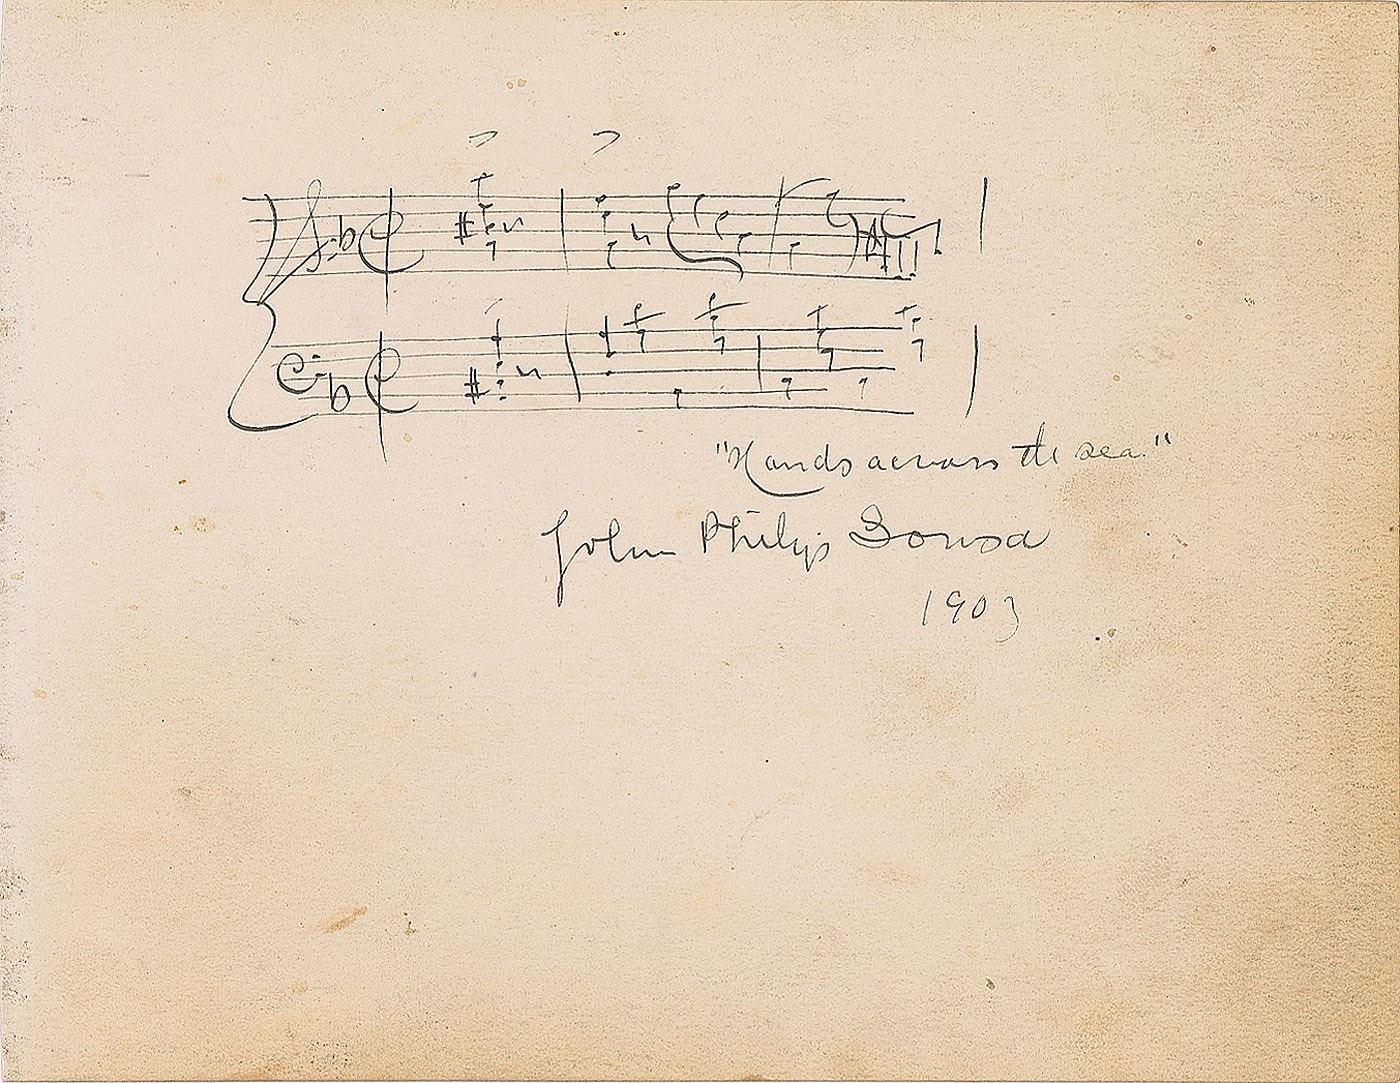 "Hands across the sea."
John Philip Sousa
1903